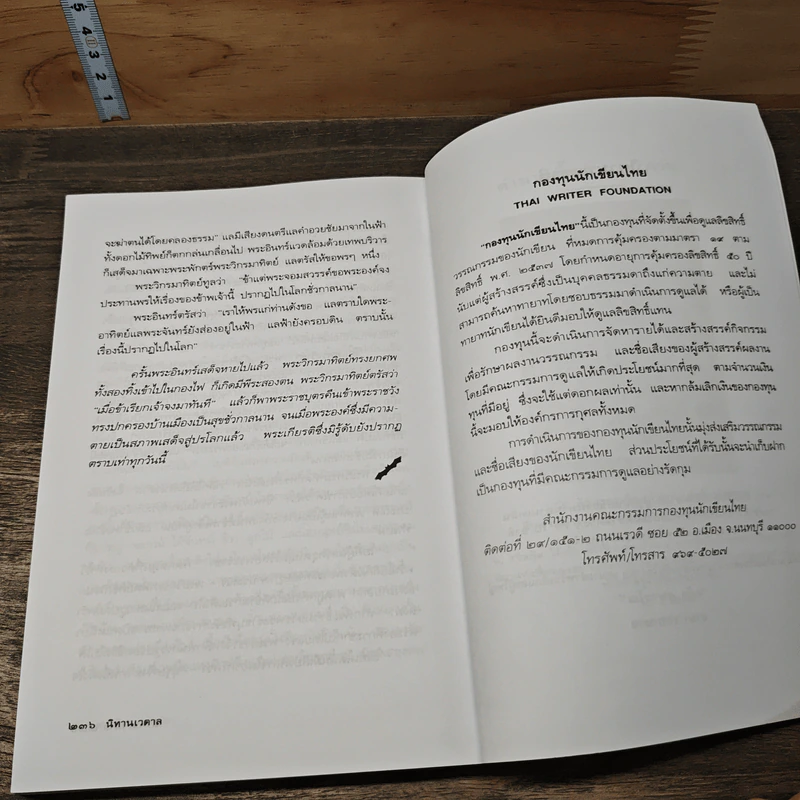 5
4
3
2
1
จะฆ่าตนได้โดยคลองธรรม" แลมีเสียงดนตรีแลคำอวยชัยมาจากในฟ้า
ทั้งดอกไม้ทิพย์ก็ตกกล่นเกลื่อนไป พระอินทร์แวดล้อมด้วยเทพบริวาร
ก็เสด็จมาเฉพาะพระพักตร์พระวิกรมาทิตย์ แลตรัสให้ขอพรๆ หนึ่ง
พระวิกรมาทิตย์ทูลว่า "ข้าแต่พระจอมสวรรค์ขอพระองค์จง
ประทานพรให้เรื่องของข้าพเจ้านี้ ปรากฏไปในโลกชั่วกาลนาน"
พระอินทร์ตรัสว่า "เราให้พรแก่ท่านดังขอ แลตราบใดพระ-
อาทิตย์แลพระจันทร์ยังส่องอยู่ในฟ้า แลฟ้ายังครอบดิน ตราบนั้น
เรื่องนี้ปรากฏไปในโลก"
ครั้นพระอินทร์เสด็จหายไปแล้ว พระวิกรมาทิตย์ทรงยกศพ
ทั้งสองทิ้งเข้าไปในกองไฟ ก็เกิดมีพีระสองตน พระวิกรมาทิตย์ตรัสว่า
"เมื่อข้าเรียกเจ้าจงมาทันที" แล้วก็พาพระราชบุตรคืนเข้าพระราชวัง
ทรงปกครองบ้านเมืองเป็นสุขชั่วกาลนาน จนเมื่อพระองค์ซึ่งมีความ-
ตายเป็นสภาพเสด็จสู่ปรโลกแล้ว พระเกียรติซึ่งมิรู้ดับยังปรากฏ
ตราบเท่าทุกวันนี้
๒๓๖ นิทานเวตาล
กองทุนนักเขียนไทย
THAI WRITER FOUNDATION
"กองทุนนักเขียนไทย"นี้เป็นกองทุนที่จัดตั้งขึ้นเพื่อดูแลลิขสิทธิ์
วรรณกรรมของนักเขียน ที่หมดการคุ้มครองตามมาตรา ๑๙ ตาม
ลิขสิทธิ์ พ.ศ. ๒๕๓๗ โดยกำหนดอายุการคุ้มครองลิขสิทธิ์ ๕๐ ปี
นับแต่ผู้สร้างสรรค์ซึ่งเป็นบุคคลธรรมดาถึงแก่ความตาย และไม่
สามารถค้นหาทายาทโดยชอบธรรมมาดำเนินการดูแลได้ หรือผู้เป็น
ทายาทนักเขียนได้ยินดีมอบให้ดูแลลิขสิทธิ์แทน
กองทุนนี้จะดำเนินการจัดหารายได้และสร้างสรรค์กิจกรรม
เพื่อรักษาผลงานวรรณกรรม และชื่อเสียงของผู้สร้างสรรค์ผลงาน
โดยมีคณะกรรมการดูแลให้เกิดประโยชน์มากที่สุด ตามจำนวนเงิน
ทุนที่มีอยู่ ซึ่งจะใช้แต่ดอกผลเท่านั้น และหากล้มเลิกเงินของกองทุน
นี้จะมอบให้องค์กรการกุศลทั้งหมด
การดำเนินการของกองทุนนักเขียนไทยนั้นมุ่งส่งเสริมวรรณกรรม
และชื่อเสียงของนักเขียนไทย ส่วนประโยชน์ที่ได้รับนั้นจะนำเก็บฝาก
เป็นกองทุนที่มีคณะกรรมการดูแลอย่างรัดกุม
สำนักงานคณะกรรมการกองทุนนักเขียนไทย
ติดต่อที่ ๒๙/๑๕๑-๒ ถนนเรวดี ซอย ๕๒ อ.เมือง จ.นนทบุรี ๑๑๐๐๐
โทรศัพท์/โทรสาร ๙๖๙-๕๐๒๗